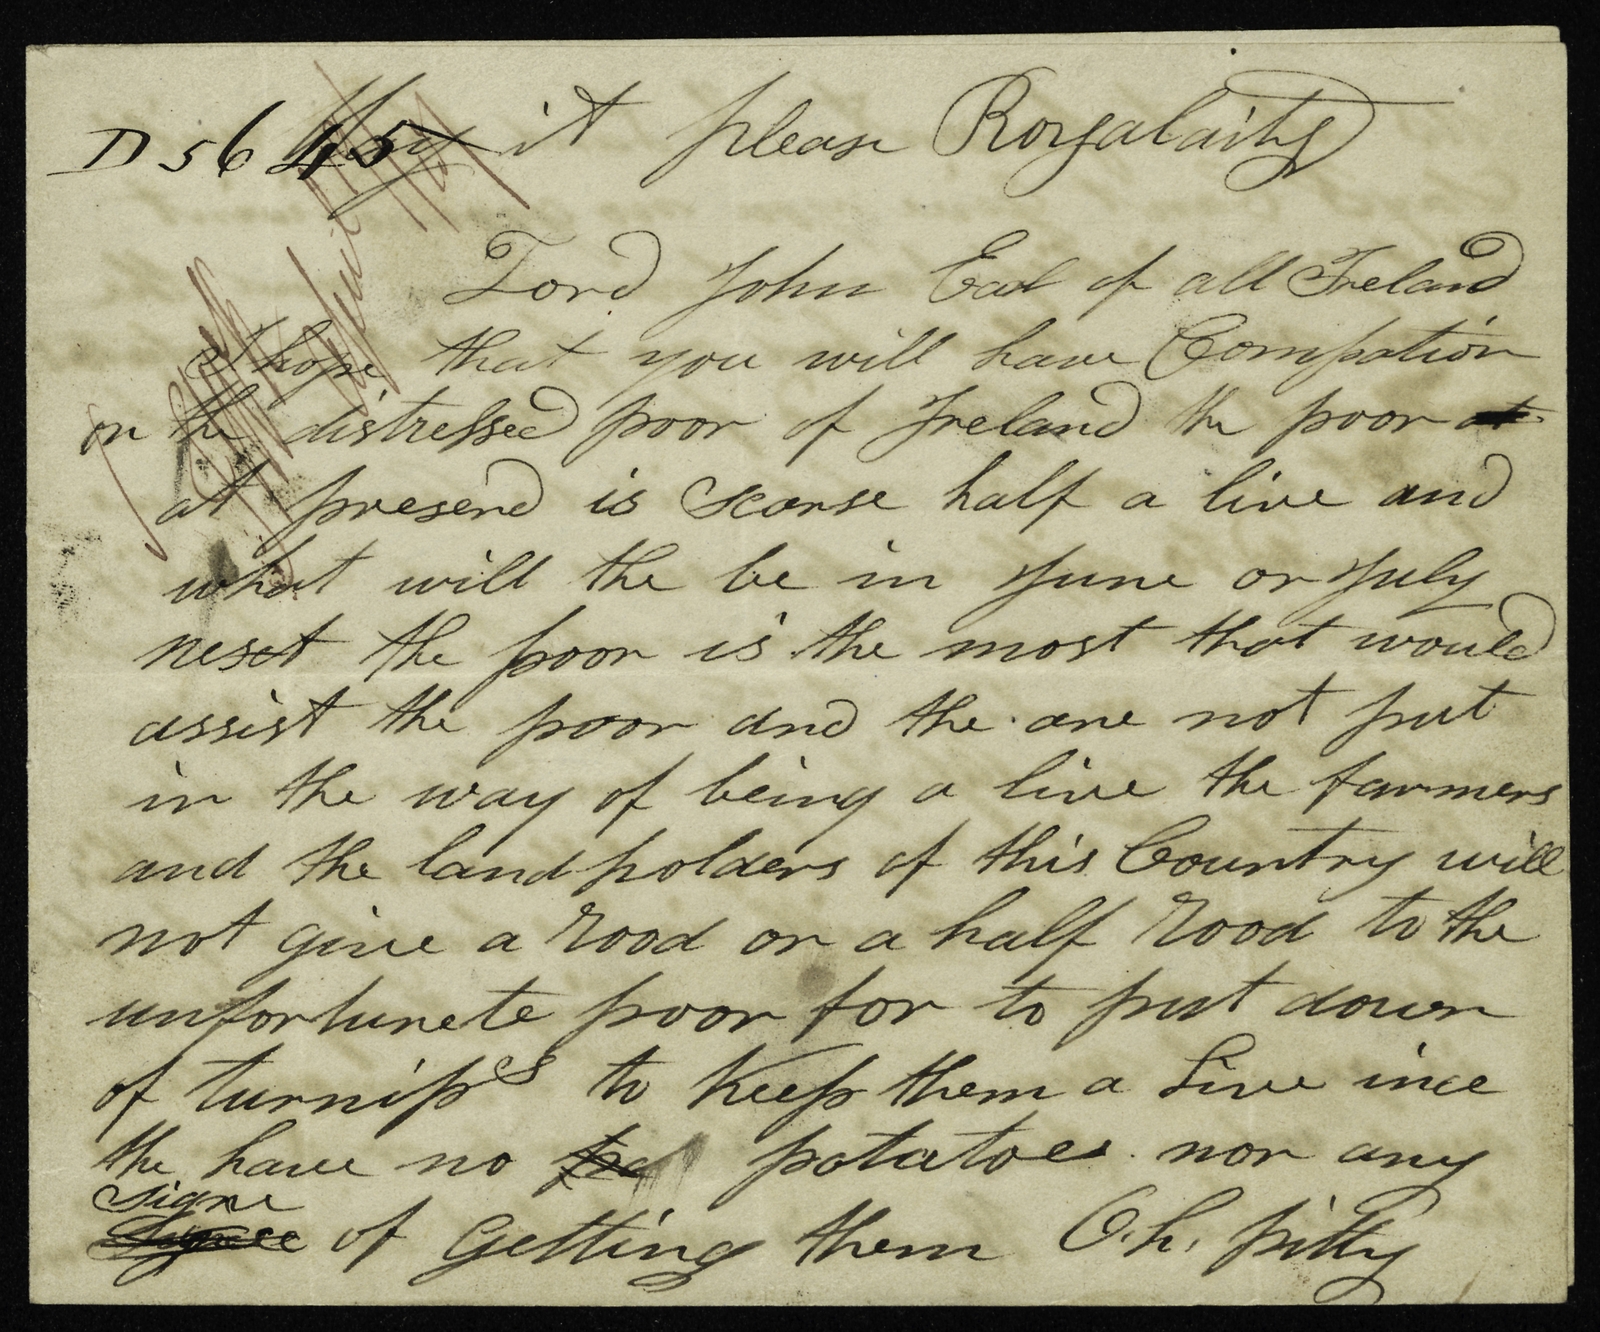 D 5645
May it please Roygalaity
Lord John Eal of all Ireland
I hope that you will have Compation
on the distressed poor of Ireland the poor at
at presend is scarse half a live and
what will the be in June or July
nesct the poor is the most that would
assist the poor and the are not put
in the way of being a live the farmers
and the landholders of this Country will
not give a rood or a half rood to the
unfortunete poor for to put down
of turnips to keep them a live ince
the have no potatoes nor any
signe
of getting them Oh, pitty